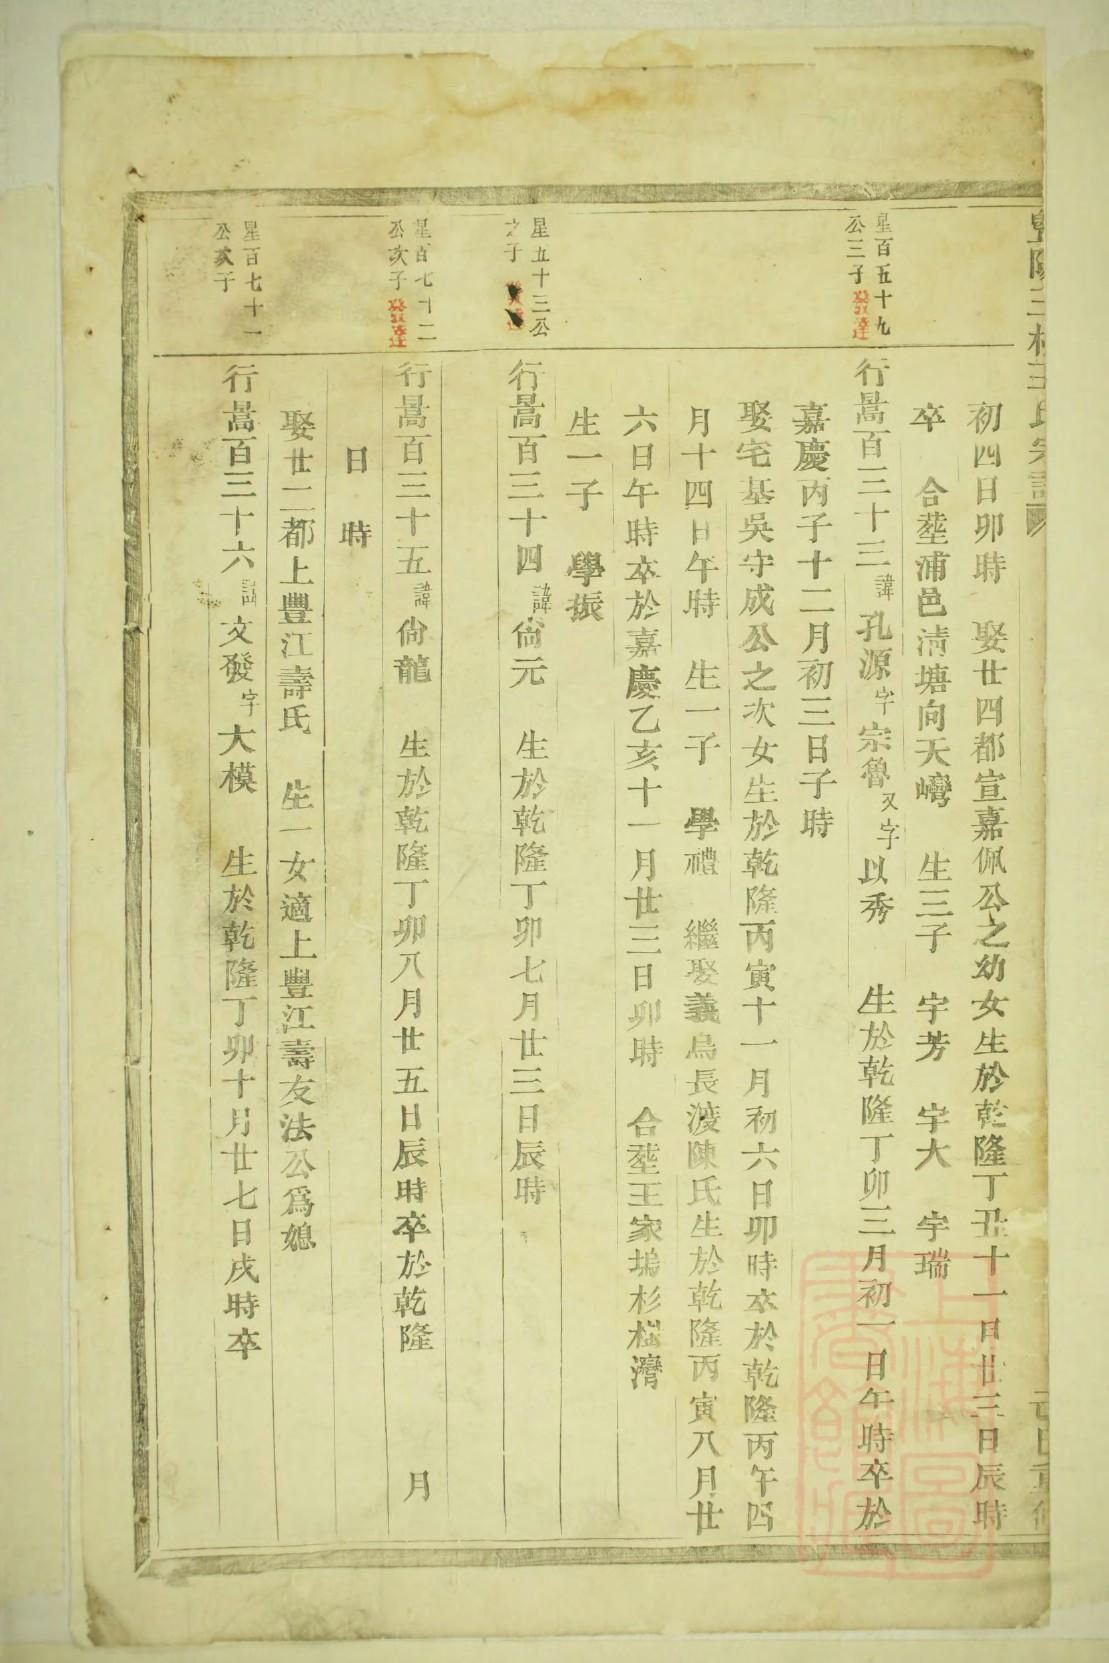 初四日卯時　娶廿四都宣嘉佩公之幼女生於乾隆丁丑十一日廿三日辰時
卒　合塟浦邑清塘向天㟳　生三子　宇芳　宇大　宇瑞
星百五十九
公三子發達
行暠百三十三諱孔源字宗魯又字以秀　生於乾隆丁卯三月初一日午時卒於
嘉慶丙子十二月初三日子時
娶宅基吳守成公之次女生於乾隆丙寅十一月初六日卯時卒於乾隆丙午四
月十四日午時　生一子　學禮　繼娶義烏長渡陳氏生於乾隆丙寅八月廿
六日午時卒於嘉慶乙亥十一月廿三日卯時　合塟王家塢杉樹灣
生一子　學振
星五十三公
之子
行暠百三十四諱尙元　生於乾隆丁卯七月廿三日辰時
星百七十二
公次子發達
行暠百三十五諱尙龍　生於乾隆丁卯八月廿五日辰時卒於乾隆　月
日　時
娶廿二都上豐江壽氏　生一女適上豐江壽友法公爲媳
星百七十一
公次子
行暠百三十六諱文發字大模　生於乾隆丁卯十月廿七日戌時卒